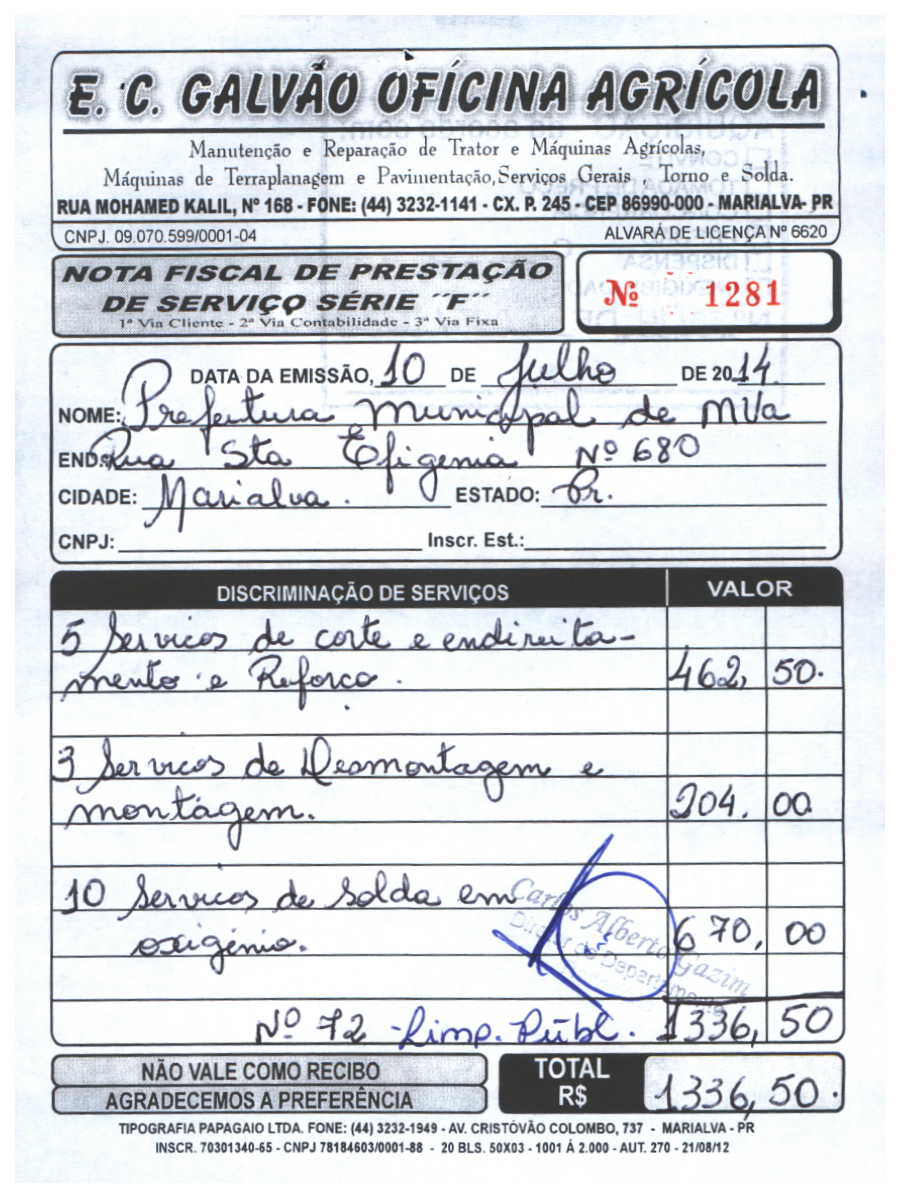 E. C. GALVÃO OFÍCINA AGRÍCOLA
Manutenção e Reparação de Trator e Máquinas Agrícolas,
Máquinas de Terraplanagem e Pavimentação, Serviços Gerais Torno e Solda.
RUA MOHAMED KALIL, Nº 168 - FONE: (44) 3232-1141 - CX. P. 245 - CEP 86990-000 - MARIALVA- PR
CNPJ. 09.070.599/0001-04 ALVARÁ DE LICENÇA Nº 6620
NOTA FISCAL DE PRESTAÇÃO
DE SERVIÇO SÉRIE ´´F´´
1ª Via Cliente - 2ª Via Contabilidade - 3ª Via Fixa
Nº 1281
DATA DA EMISSÃO, 10 DE Julho DE 2014
NOME: Prefeitura Municipal de MVa
END: Rua Sta Efigenia Nº 680
CIDADE: Marialva. ESTADO: Pr.
CNPJ: Inscr. Est.:
DISCRIMINAÇÃO DE SERVIÇOS VALOR
5 Servicos de corte e endireita-
mento e Reforco. 462, 50.
3 Servicos de Desmontagem e
montagem. 204. 00
10 Servicos de Solda em
oxigênio. 670, 00
Carlos Alberto Gazim
Diretor de Departamento
Nº 72 - Limp. Públ. 1336, 50
NÃO VALE COMO RECIBO
AGRADECEMOS A PREFERÊNCIA
TOTAL
R$ 1336,50.
TIPOGRAFIA PAPAGAIO LTDA. FONE: (44) 3232-1949 - AV. CRISTÓVÃO COLOMBO, 737 - MARIALVA - PR
INSCR. 70301340-65 - CNPJ 78184603/0001-88 - 20 BLS. 50X03 - 1001 Á 2.000 - AUT. 270 - 21/08/12